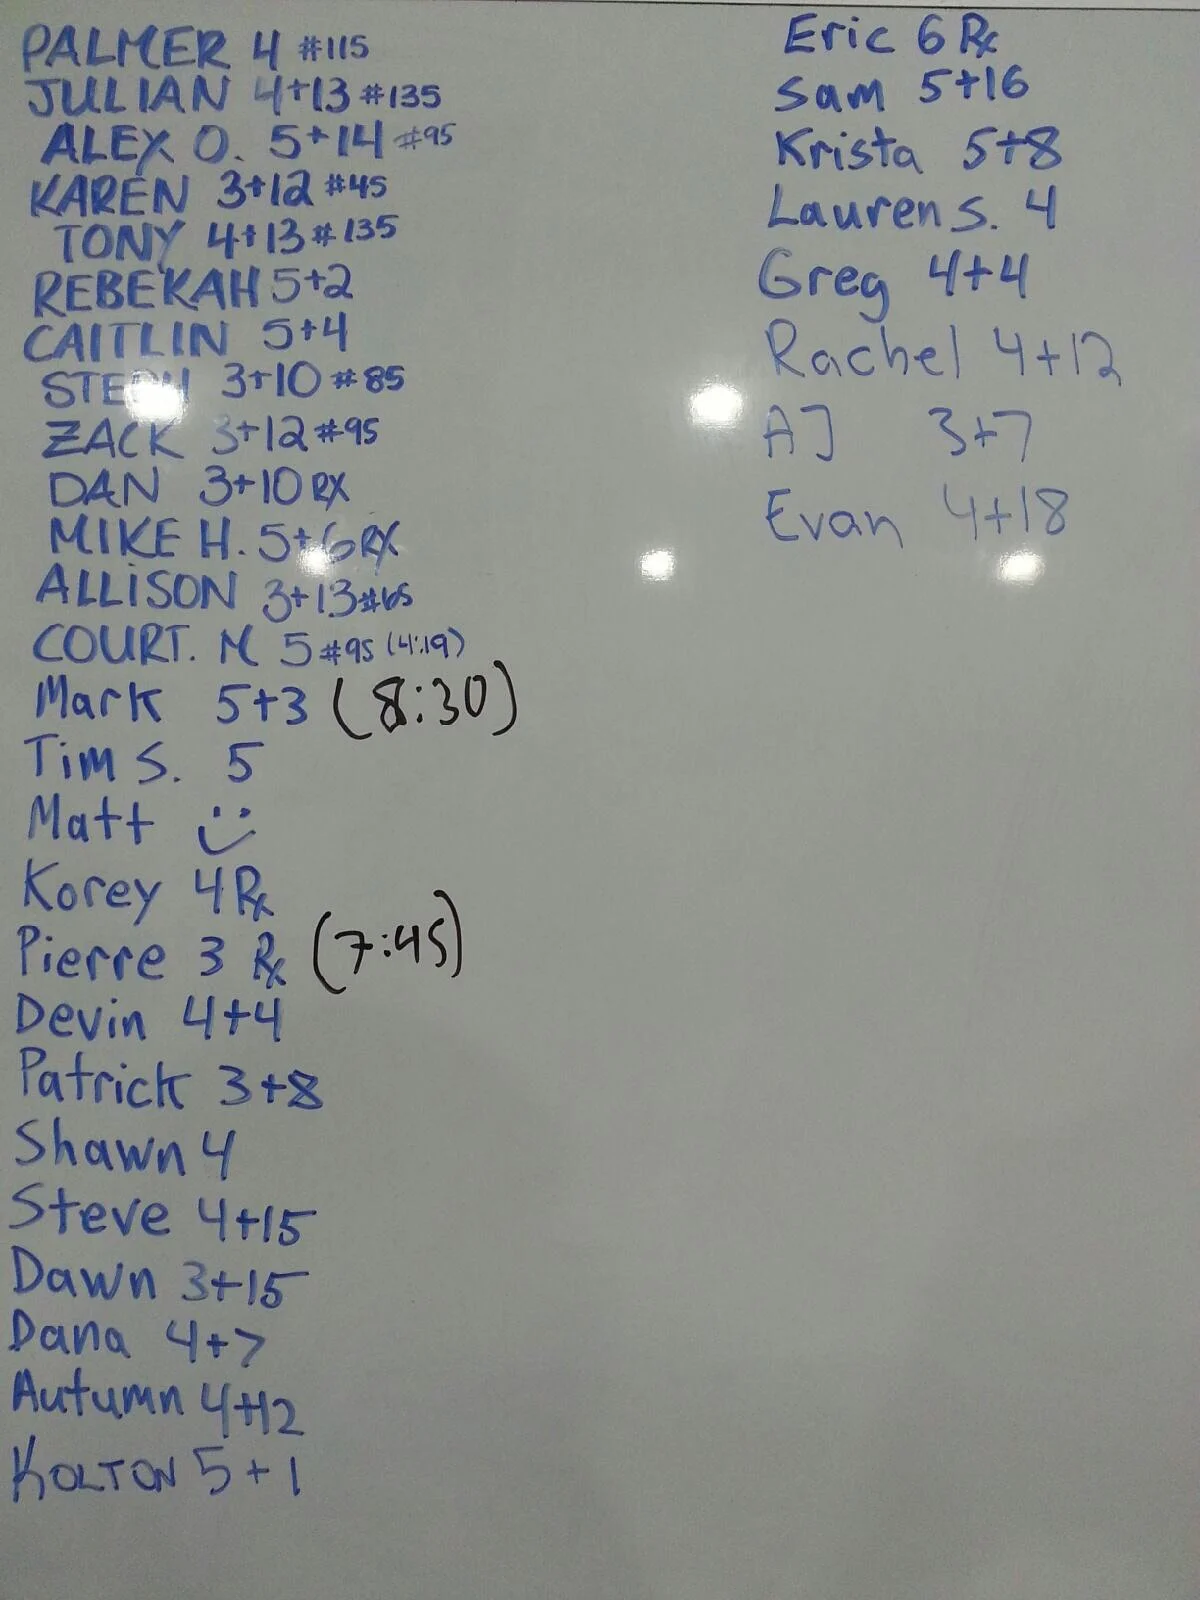 PALMER 4 #115
JULIAN 4+13 #135
ALEX O. 5+14 #95
KAREN 3+12 #45
TONY 4+13 #135
REBEKAH 5+2
CAITLIN 5+4
STEPH 3+10 #85
ZACK 3+12 #95
DAN 3+10 RX
MIKE H. 5+6 RX
ALLISON 3+13 #65
COURT. M 5 #95 (4:19)
Mark 5+3 (8:30)
Tim S. 5
Matt
Korey 4 Rx
Pierre 3 Rx (7:45)
Devin 4+4
Patrick 3+8
Shawn 4
Steve 4+15
Dawn 3+15
Dana 4+7
Autumn 4+12
KOLTON 5+1
Eric 6 Rx
Sam 5+16
Krista 5+8
Lauren S. 4
Greg 4+4
Rachel 4+12
AJ 3+7
Evan 4+18